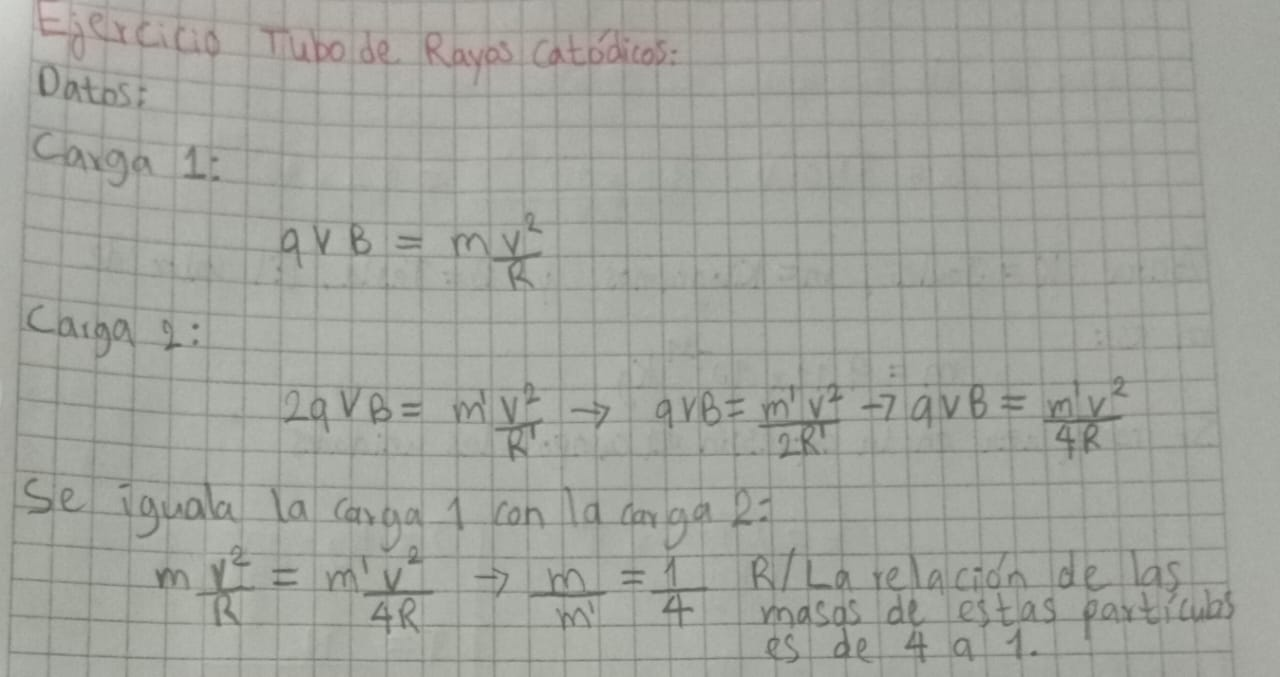 Ejercicio Tubo de Rayos Catódicos:
Datos:
Carga 1:
qVB = m v²/R
Carga 2:
2qVB = m' v²/R' → qVB = m'v²/2R' → qVB = m'v²/4R
Se iguala la carga 1 con la carga 2:
m v²/R = m'v²/4R → m/m' = 1/4 R/ La relación de las
masas de estas partículas
es de 4 a 1.